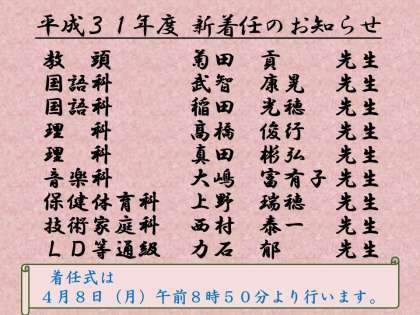 平成３１年度 新着任のお知らせ
教　頭　菊田　貢　先生
国語科　武智　康晃　先生
国語科　稲田　光穂　先生
理　科　高橋　俊行　先生
理　科　真田　彬弘　先生
音楽科　大嶋　富有子　先生
保健体育科　上野　瑞穂　先生
技術家庭科　西村　泰一　先生
ＬＤ等通級　力石　郁　先生
着任式は
４月８日（月）午前８時５０分より行います。